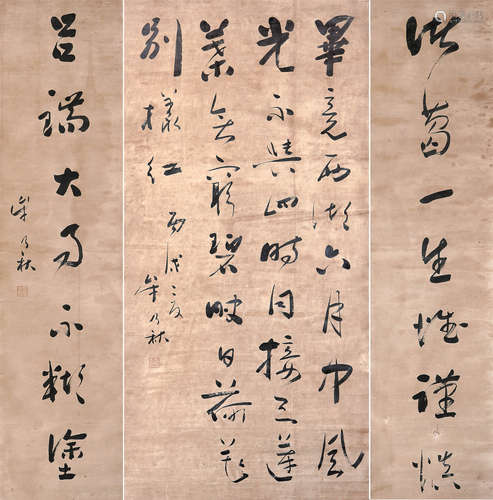 諸葛一生惟謹慎
畢竟西湖六月中風
光不與四時同接天蓮
葉無窮碧映日荷花
別樣紅
丙戌之夏
乃秋
呂端大事不糊塗
乃秋